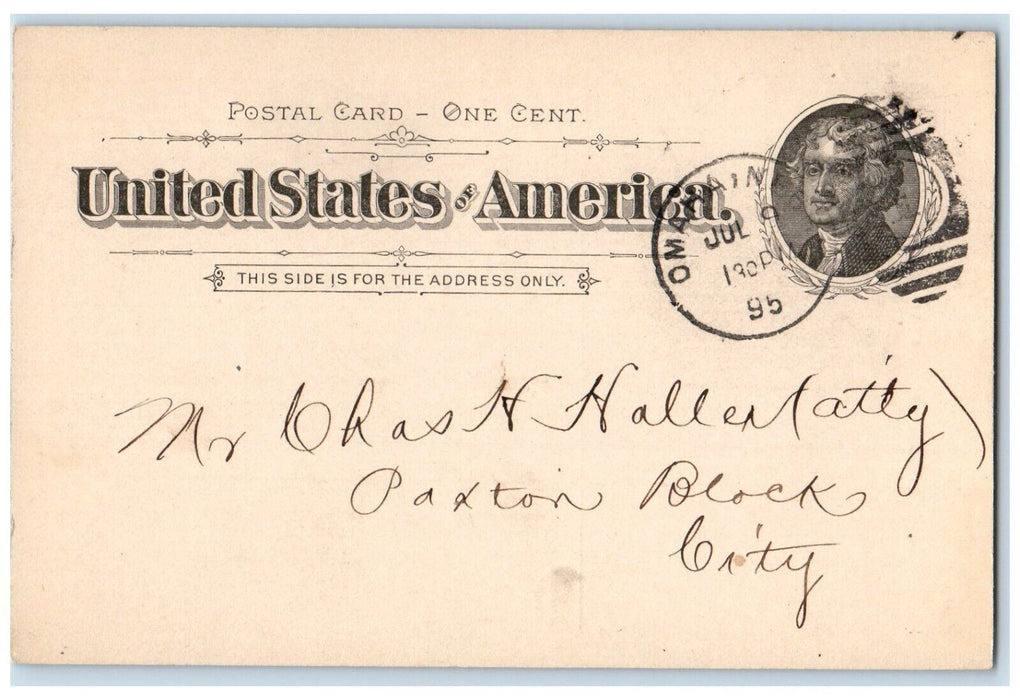 POSTAL CARD – ONE CENT.
United States OF America.
THIS SIDE IS FOR THE ADDRESS ONLY.
OMAHA
JUL
130P
95
Mr Chas H Haller (atty)
Paxton Block
City